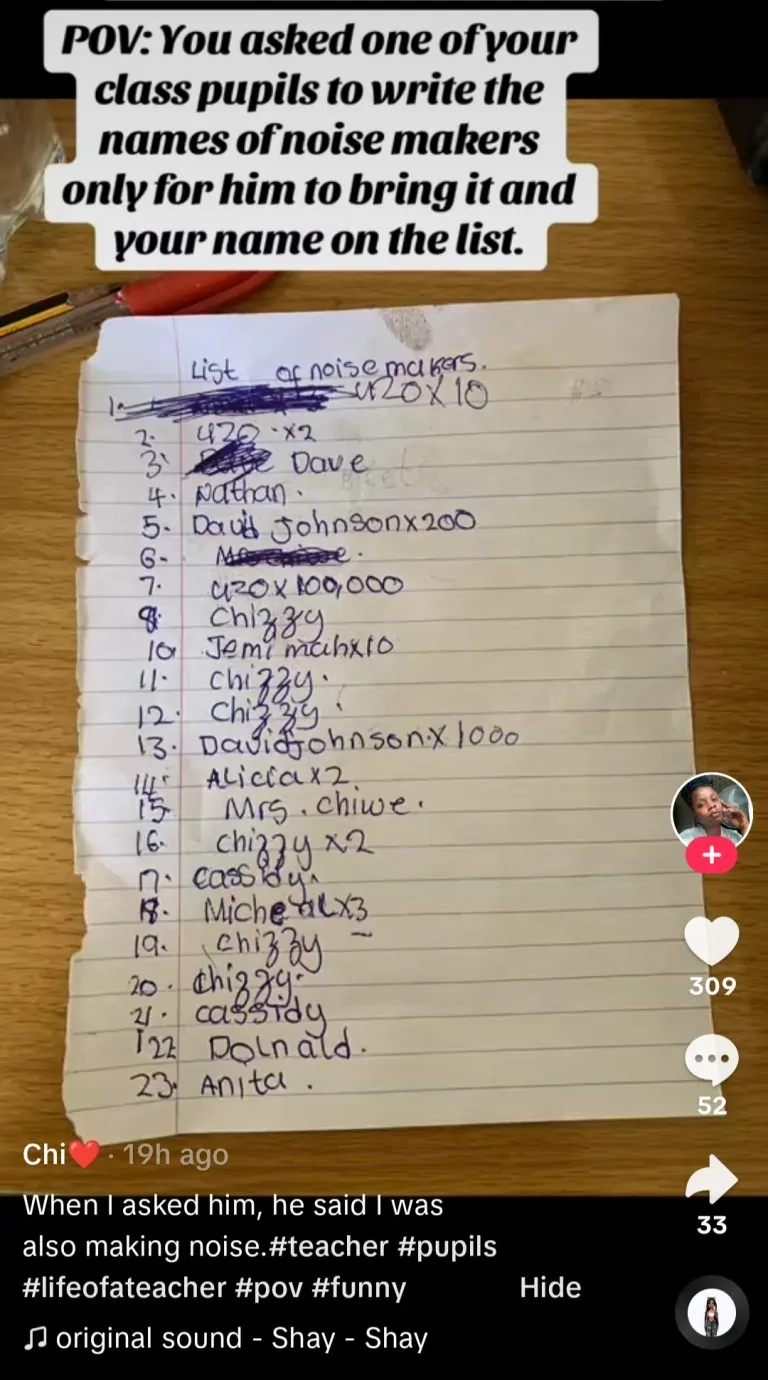 POV: You asked one of your
class pupils to write the
names of noise makers
only for him to bring it and
your name on the list.
List of noise makers.
1. 420X10
2. 420 ·x2
3. Dave
4. Nathan.
5. David Johnsonx200
6.
7. 420x100,000
8. Chizzy
10 Jemimahx10
11. Chizzy.
12. Chizzy.
13. DavidJohnsonx1000
14. Aliciax2.
15 Mrs. Chiwe.
16. Chizzy x2
17. Cassidy.
18. Michealx3
19. Chizzy
20. Chizzy.
21. Cassidy
22 Dolnald.
23. Anita.
Chi❤️ · 19h ago
When I asked him, he said I was
also making noise.#teacher #pupils
#lifeofateacher #pov #funny Hide
original sound - Shay - Shay
309
52
33